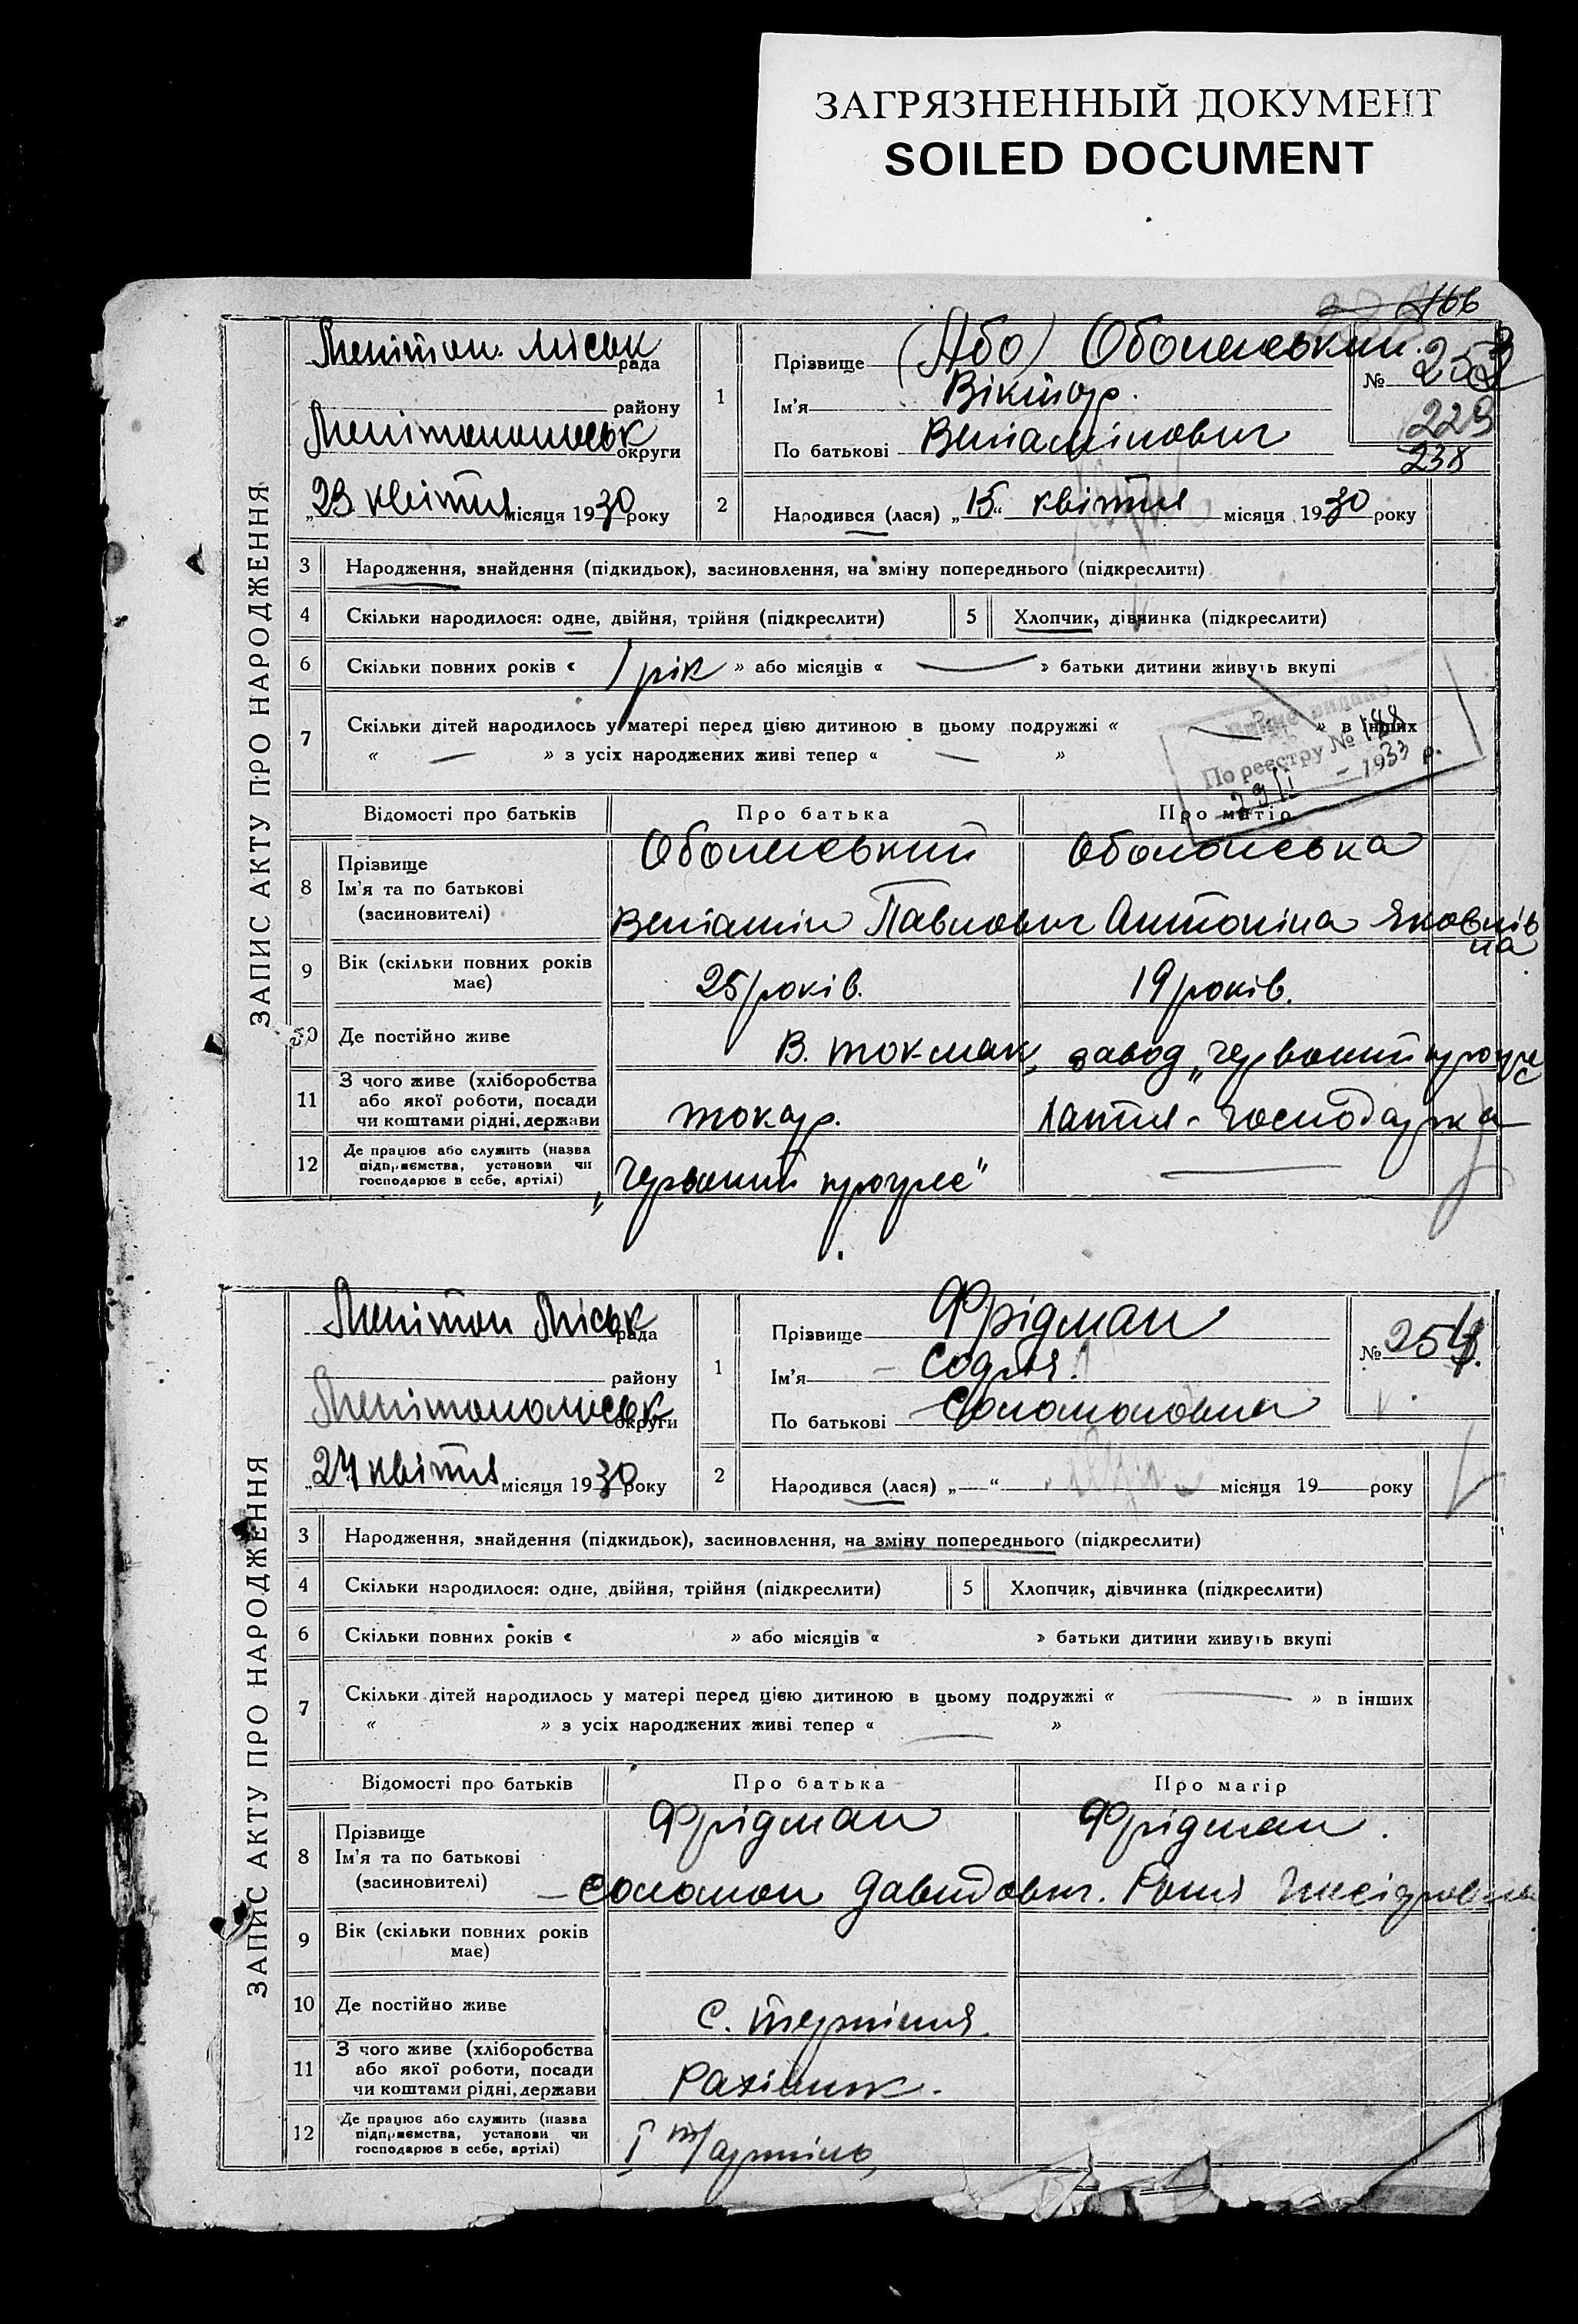 ЗАГРЯЗНЕННЫЙ ДОКУМЕНТ
SOILED DOCUMENT
166
ЗАПИС АКТУ ПРО НАРОДЖЕННЯ
Мелітоп. Міськ рада
району
Мелітопольськ округи
„23 квітня місяця 1930 року
1
Прізвище (Або) Оболенський.
Ім'я Віктор.
По батькові Веніамінович
№ 253
229
238
2
Народився (лася) „15“ квітня місяця 1930 року
3 Народження, знайдення (підкидьок), засиновлення, на зміну попереднього (підкреслити)
4 Скільки народилося: одне, двійня, трійня (підкреслити) 5 Хлопчик, дівчинка (підкреслити)
6 Скільки повних років « 1 рік » або місяців « — » батьки дитини живуть вкупі
7 Скільки дітей народилось у матері перед цією дитиною в цьому подружжі « — » в інших
« — » з усіх народжених живі тепер « — »
видано
По реєстру № 188
29/II – 1933 р.
Відомості про батьків Про батька Про матір
8 Прізвище Оболенський Оболенська
Ім'я та по батькові
(засиновителі) Веніамін Павлович Антоніна Яковлівна
9 Вік (скільки повних років має) 25 років. 19 років.
10 Де постійно живе В. Токмак, завод „Червоний прогрес
11 З чого живе (хліборобства
або якої роботи, посади
чи коштами рідні, держави токар. хатня - господарка
12 Де працює або служить (назва
підприємства, установи чи
господарює в себе, артілі) „Червоний прогрес“ —
ЗАПИС АКТУ ПРО НАРОДЖЕННЯ
Мелітоп Міськ рада
району
Мелітопольськ округи
„24 квітня місяця 1930 року
1
Прізвище Фрідман
Ім'я Софія.
По батькові Соломоновна
№ 254.
2
Народився (лася) „—“ місяця 19— року
3 Народження, знайдення (підкидьок), засиновлення, на зміну попереднього (підкреслити)
4 Скільки народилося: одне, двійня, трійня (підкреслити) 5 Хлопчик, дівчинка (підкреслити)
6 Скільки повних років « » або місяців « » батьки дитини живуть вкупі
7 Скільки дітей народилось у матері перед цією дитиною в цьому подружжі « — » в інших
« » з усіх народжених живі тепер « — »
Відомості про батьків Про батька Про матір
8 Прізвище Фрідман Фрідман.
Ім'я та по батькові
(засиновителі) Соломон Давидович.
9 Вік (скільки повних років має)
10 Де постійно живе С. Терпіння.
11 З чого живе (хліборобства
або якої роботи, посади
чи коштами рідні, держави
12 Де працює або служить (назва
підприємства, установи чи
господарює в себе, артілі)